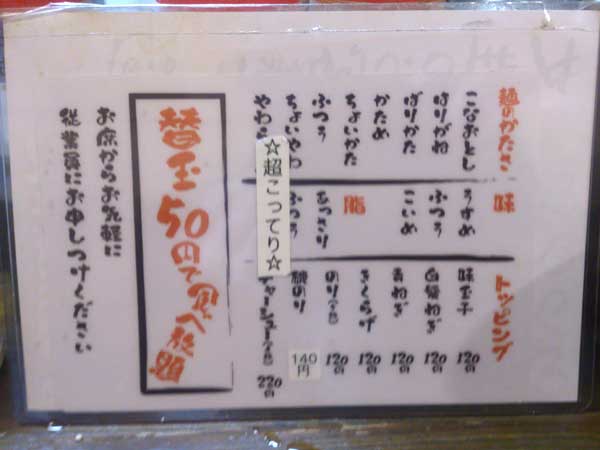 麺のかたさ
こなおとし
はりがね
ばりかた
かため
ちょいかた
ふつう
ちょいやわ
やわら
味
うすめ
ふつう
こいめ
脂
あっさり
ふつう
☆超こってり☆
トッピング
味玉子 120円
白髪ねぎ 120円
青ねぎ 120円
きくらげ 120円
のり 120円
のり 140円
チャーシュー 220円
替玉50円で食べ放題
お席からお気軽に
従業員にお申しつけください